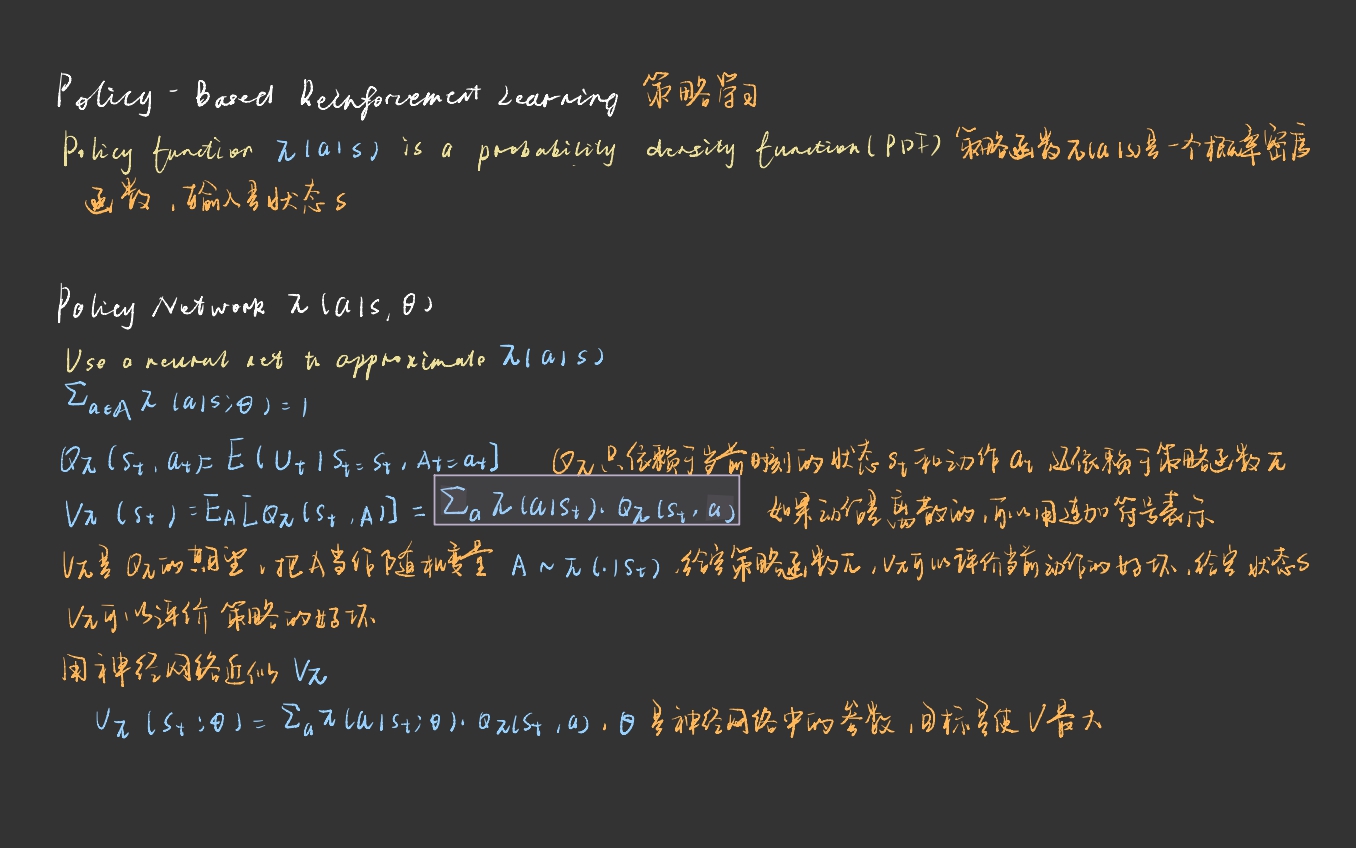 Policy - Based Reinforcement Learning 策略学习
Policy function π(a|s) is a probability density function(PDF) 策略函数π(a|s)是一个概率密度
函数，输入是状态s
Policy Network π(a|s, θ)
Use a neural net to approximate π(a|s)
Σ_{a∈A} π(a|s;θ)=1
Q_π(s_t, a_t)= E[U_t|S_t=s_t, A_t=a_t] Q_π只依赖于当前时刻的状态s_t和动作a_t 还依赖于策略函数π
V_π(s_t)=E_A[Q_π(s_t, A)] = Σ_a π(a|s_t)·Q_π(s_t, a) 如果动作是离散的，可以用连加符号表示
V_π是Q_π的期望，把A当作随机变量 A ~ π(·|s_t)，给定策略函数π，V_π可以评价当前动作的好坏，给定状态s
V_π可以评价策略的好坏
用神经网络近似 V_π
V_π(s_t;θ)= Σ_a π(a|s_t;θ)·Q_π(s_t, a)，θ是神经网络中的参数，目标是使V最大